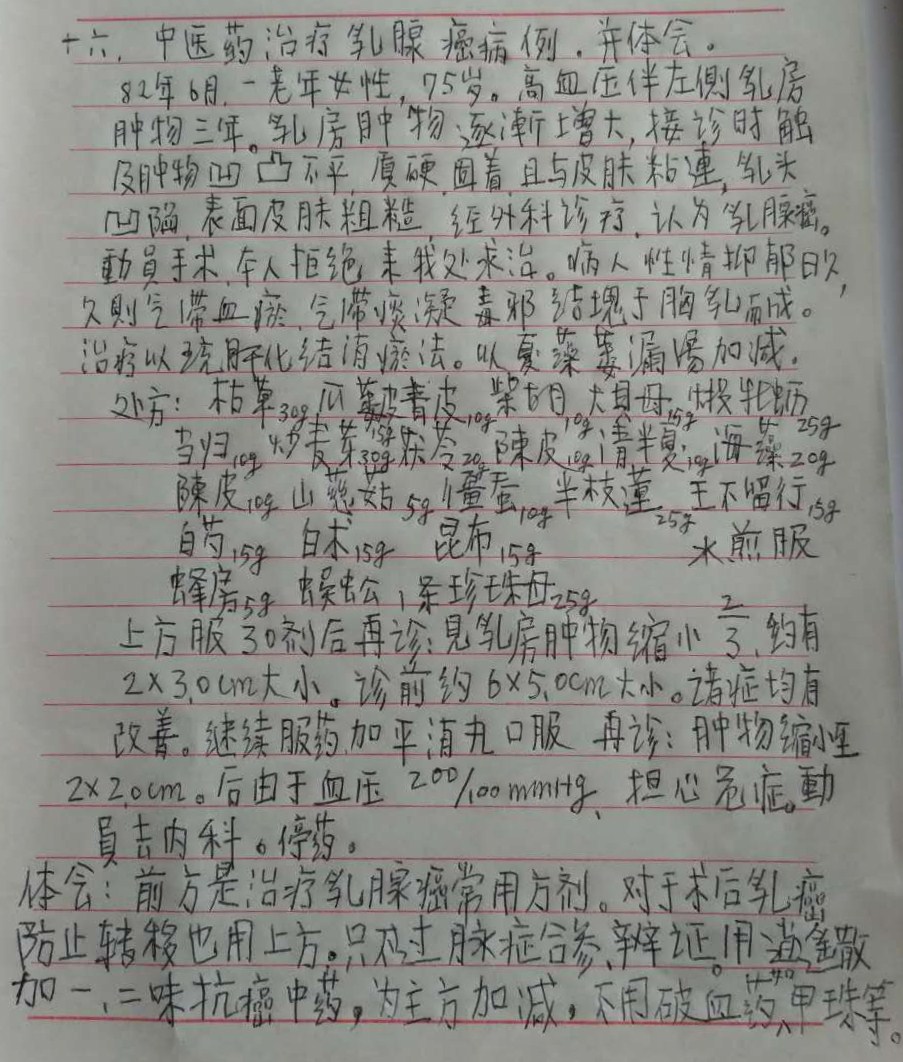 十六、中医药治疗乳腺癌病例。并体会。
82年6月,一老年女性,75岁。高血压伴左側乳房
肿物三年。乳房肿物逐漸增大,接诊时触
及肿物凹凸不平,质硬,固着,且与皮肤粘連,乳头
凹陷,表面皮肤粗糙,经外科诊疗,认为乳腺癌。
動員手术,本人拒绝,来我处求治。病人性情抑郁日久,
久則气滞血瘀,气滞痰凝毒邪结塊于胸乳而成。
治疗以疏肝化结消瘀法。以夏藻蒌漏湯加减。
处方:枯草30g 瓜蒌皮15g 青皮10g 柴胡10g 大貝母15g 煅牡蛎25g
当归10g 炒麦芽30g 茯苓20g 陳皮10g 清半夏10g 海藻20g
陳皮10g 山慈菇5g 僵蚕10g 半枝蓮25g 王不留行15g
白芍15g 白术15g 昆布15g 水煎服
蜂房5g 蜈蚣1条 珍珠母25g
上方服30剂后再诊:見乳房肿物缩小2/3,约有
2×3.0cm大小。诊前约6×5.0cm大小。诸症均有
改善。继续服药,加平消丸口服 再诊:肿物缩小至
2×2.0cm。后由于血压200/100mmHg、担心危症。動
員去内科。停药。
体会:前方是治疗乳腺癌常用方剂。对于术后乳癌
防止转移也用上方。只不过脉症合参、辨证。用散
加一、二味抗癌中药,为主方加减,不用破血药,如甲珠等。